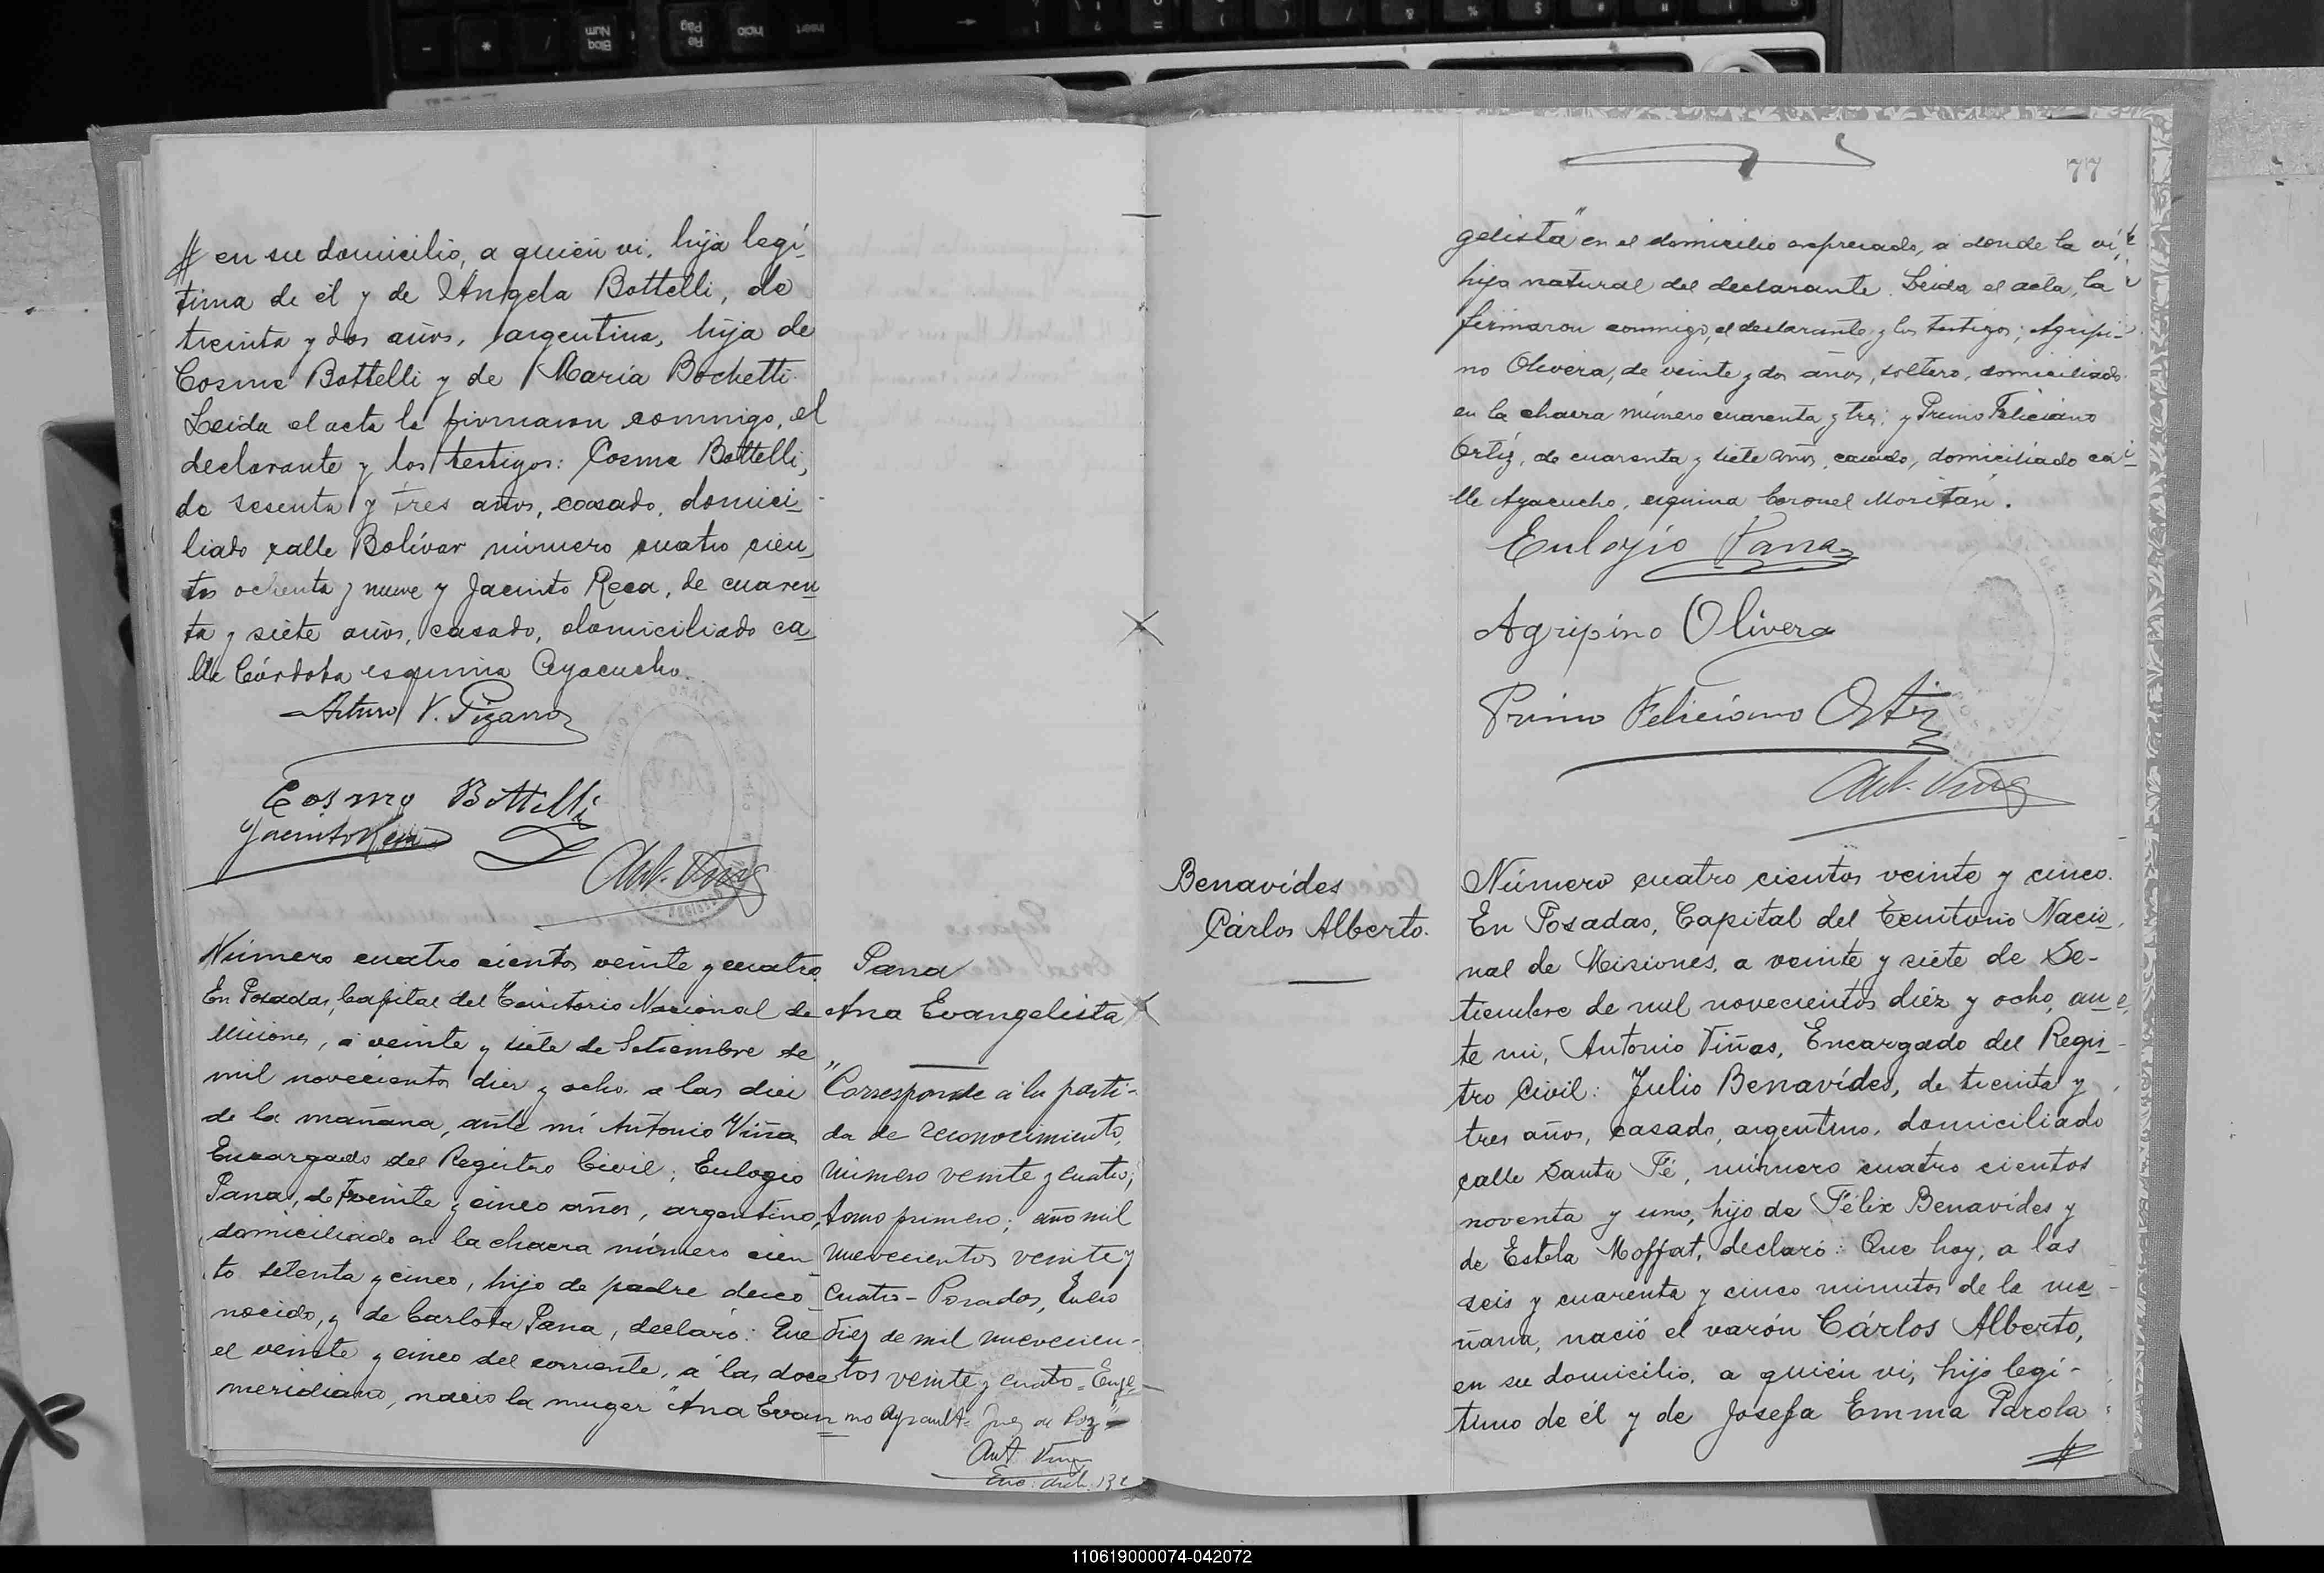 # en su domicilio, a quién vi, hija legí-
tima de él y de Angela Bottelli, de
treinta y dos años, argentina, hija de
Cosme Bottelli y de María Bochetti.
Leida el acta la firmaron conmigo, el
declarante y los testigos: Cosme Bottelli,
de sesenta y tres años, casado, domici-
liado calle Bolívar número cuatro cien-
tos ochenta y nueve y Jacinto Reca, de cuaren-
ta y siete años, casado, domiciliado ca-
lle Córdoba esquina Ayacucho.
Arturo V. Pizarro
Cosme Bottelli
Jacinto Reca
Ant. Viñas
Número cuatro cientos veinte y cuatro.
En Posadas, Capital del Territorio Nacional de
Misiones, a veinte y siete de Setiembre de
mil novecientos diez y ocho a las diez
de la mañana, ante mí Antonio Viñas
Encargado del Registro Civil; Eulogio
Pana, de treinta y cinco años, argentino,
domiciliado en la chacra número cien-
to setenta y cinco, hijo de padre desco-
nocido, y de Carlota Pana, declaró: Que
el veinte y cinco del corriente, a las doce
meridiano, nació la muger "Ana Evan-
Pana
Ana Evangelista
"Corresponde a la parti-
da de reconocimiento,
número veinte y cuatro;
tomo primero; año mil
nuevecientos veinte y
cuatro - Posadas, Enero
diez de mil nuevecien-
tos veinte y cuatro = Euge-
nio Ayrault = Juez de Paz"=
Ant Viñas
77
gelista" en el domicilio expresado, a donde la vi,
hija natural del declarante. Leida el acta, la
firmaron conmigo, el declarante y los testigos; Agripi-
no Olivera, de veinte y dos años, soltero, domiciliado
en la chacra número cuarenta y tres; y Primo Feliciano
Ortíz, de cuarenta y siete años, casado, domiciliado ca-
lle Ayacucho, esquina Coronel Moritán.
Eulogio Pana
Agripino Olivera
Primo Feliciano Ortiz
Ant. Viñas
Benavídes
Cárlos Alberto.
Número cuatro cientos veinte y cinco.
En Posadas, Capital del Territorio Nacio-
nal de Misiones, a veinte y siete de Se-
tiembre de mil novecientos diéz y ocho, an-
te mi, Antonio Viñas, Encargado del Regis-
tro Civil: Julio Benavídes, de treinta y
tres años, casado, argentino, domiciliado
calle Santa Fé, número cuatro cientos
noventa y uno, hijo de Félix Benavídes y
de Estela Moffat, declaró: Que hoy, a las
seis y cuarenta y cinco minutos de la ma-
ñana, nació el varón Cárlos Alberto,
en su domicilio, a quién vi, hijo legí-
timo de él y de Josefa Emma Parola
#
110619000074-042072